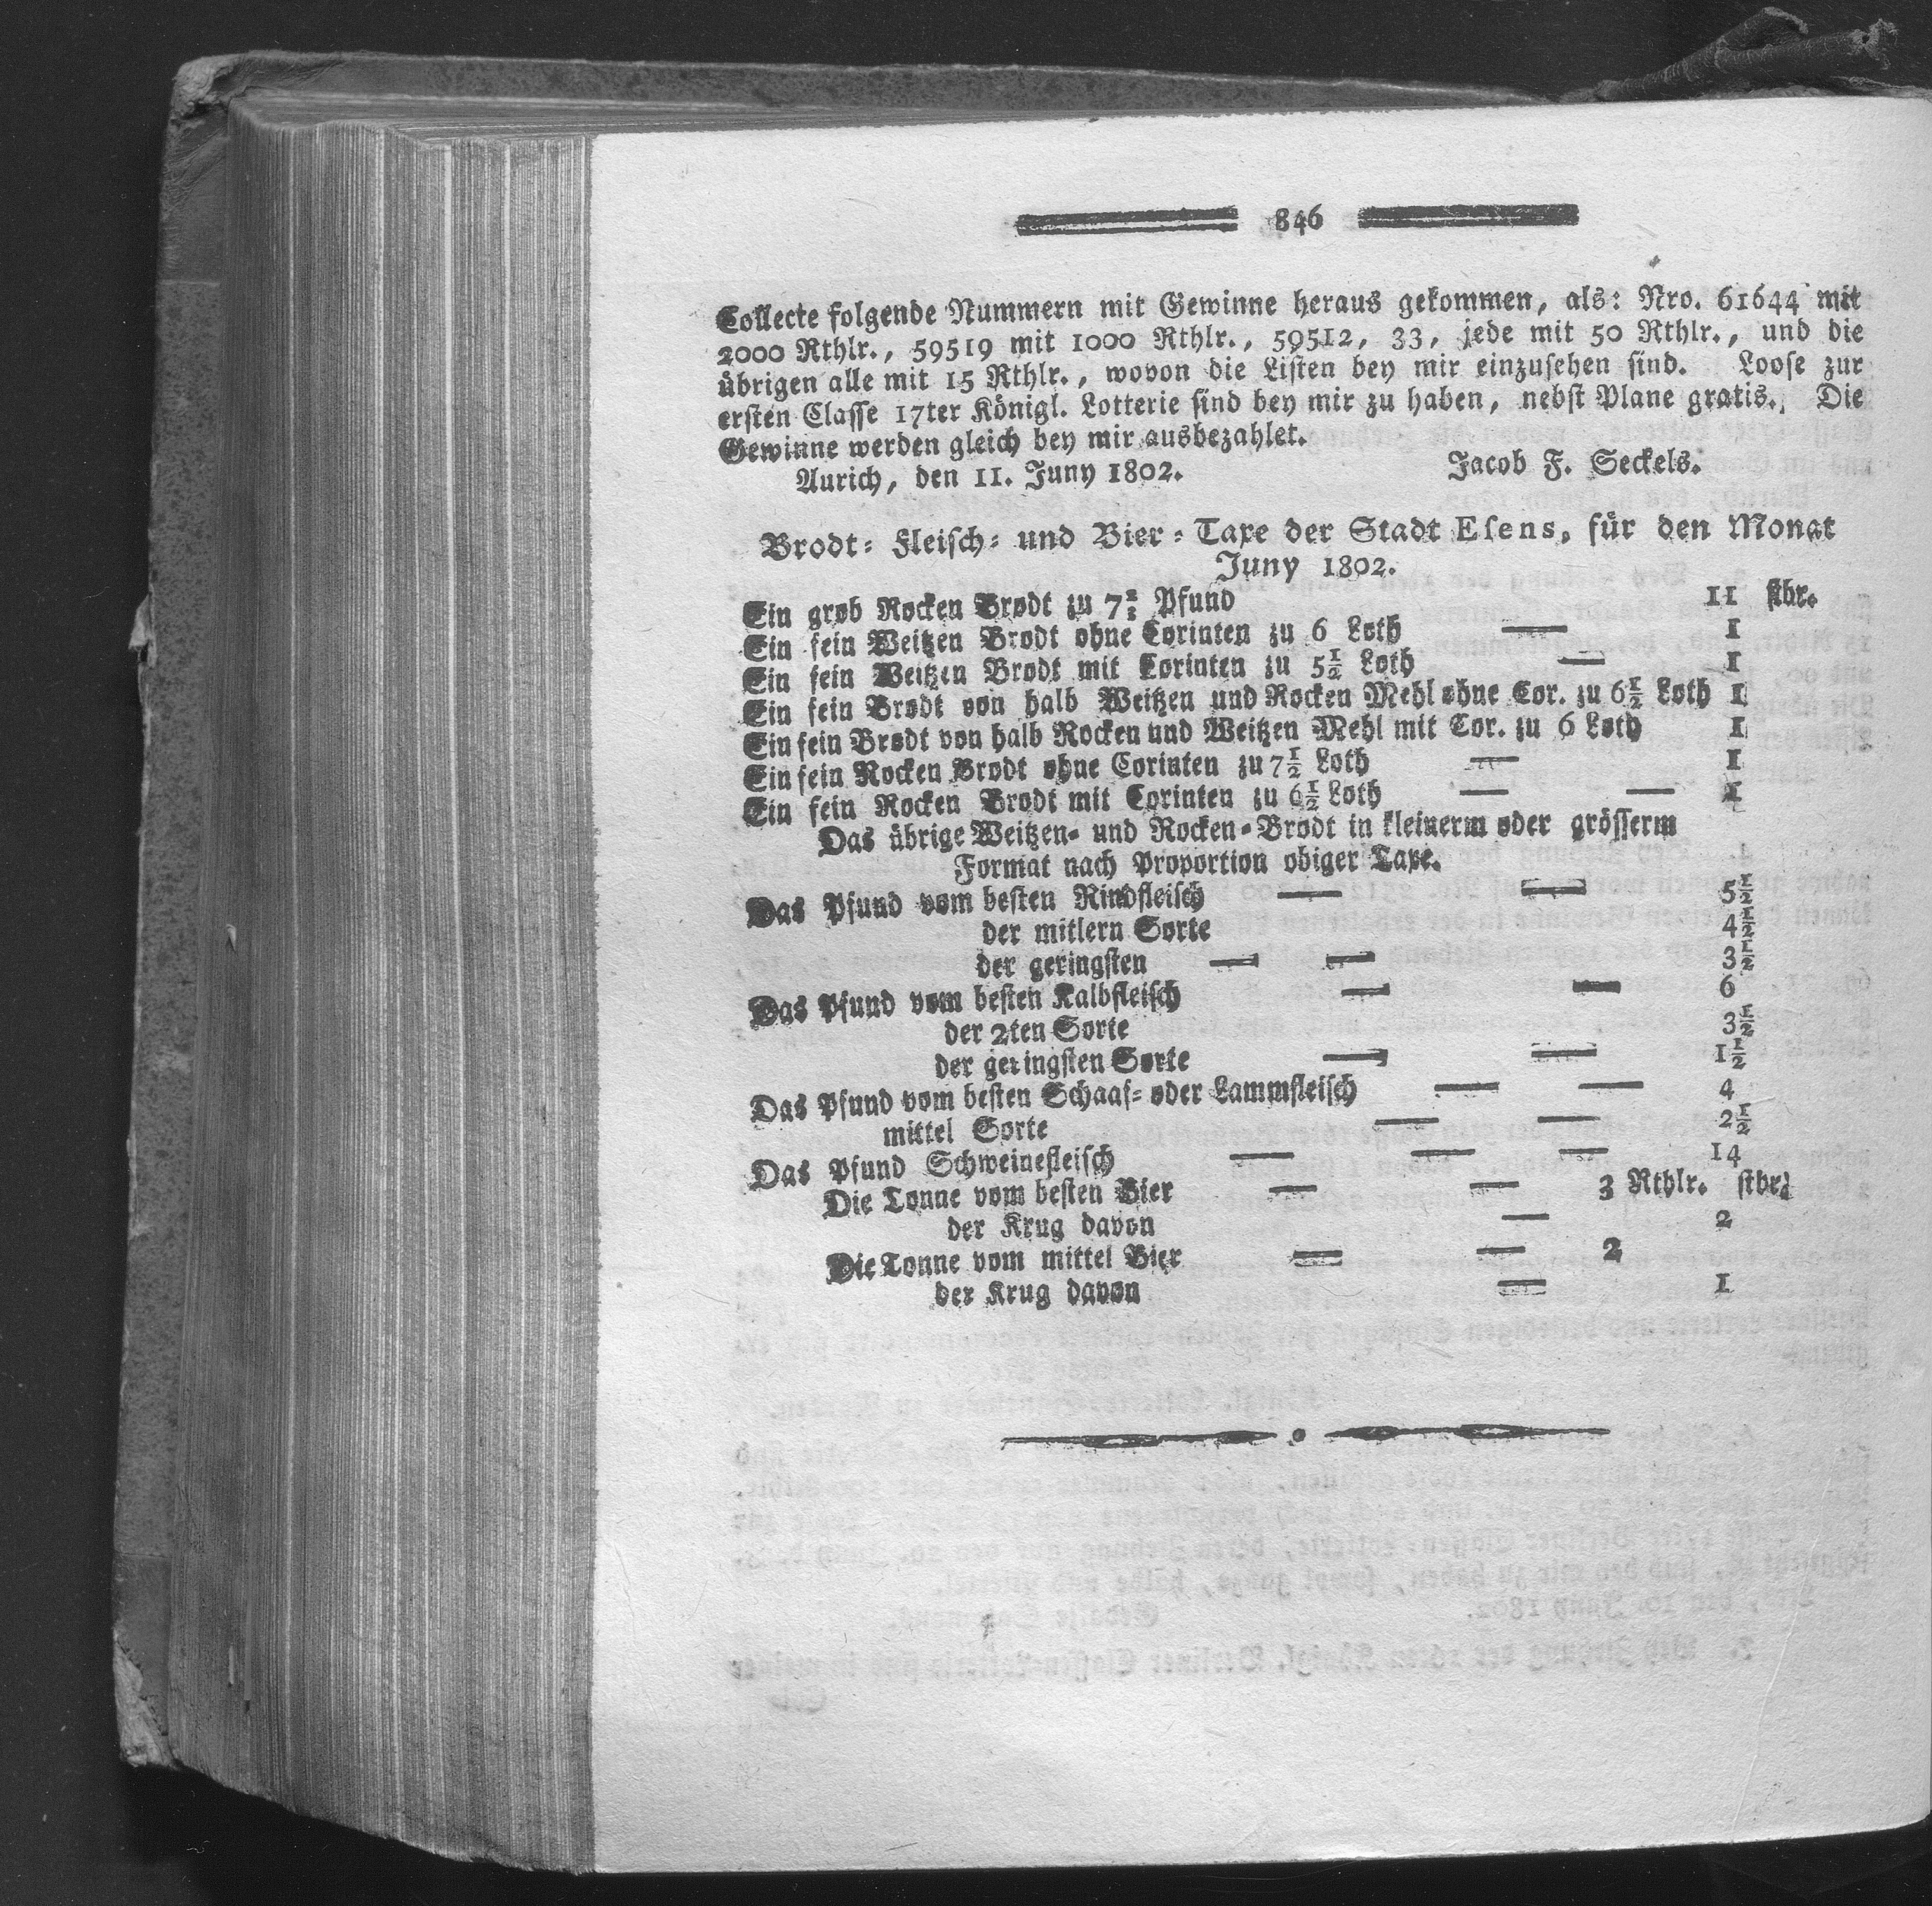 846
Collecte folgende Nummern mit Gewinne heraus gekommen, als: Nro. 61644 mit
2000 Rthlr., 59519 mit 1000 Rthlr., 59512, 33, jede mit 50 Rthlr., und die
übrigen alle mit 15 Rthlr., wovon die Listen bey mir einzusehen sind. Loose zur
ersten Classe 17ter Königl. Lotterie sind bey mir zu haben, nebst Plane gratis. Die
Gewinne werden gleich bey mir ausbezahlet.
Aurich, den 11. Juny 1802. Jacob F. Seckels.
Brodt- Fleisch- und Bier-Taxe der Stadt Esens, für den Monat
Juny 1802.
Ein grob Rocken Brodt zu 7 1/2 Pfund 11 stbr.
Ein fein Weitzen Brodt ohne Corinten zu 6 Loth — 1
Ein fein Weitzen Brodt mit Corinten zu 5 1/2 Loth — 1
Ein fein Brodt von halb Weitzen und Rocken Mehl ohne Cor. zu 6 1/2 Loth 1
Ein fein Brodt von halb Rocken und Weitzen Mehl mit Cor. zu 6 Loth 1
Ein fein Rocken Brodt ohne Corinten zu 7 1/2 Loth — 1
Ein fein Rocken Brodt mit Corinten zu 6 1/2 Loth — — 1
Das übrige Weitzen- und Rocken-Brodt in kleinerm oder grösserm
Format nach Proportion obiger Taxe.
Das Pfund vom besten Rindfleisch — — 5 1/2
der mitlern Sorte 4 1/2
der geringsten — — 3 1/2
Das Pfund vom besten Kalbfleisch — — 6
der 2ten Sorte 3 1/2
der geringsten Sorte — — 1 1/2
Das Pfund vom besten Schaaf- oder Lammfleisch — — 4
mittel Sorte — — 2 1/2
Das Pfund Schweinefleisch — — — 14
Die Tonne vom besten Bier — — 3 Rthlr. stbr.
der Krug davon — 2
Die Tonne vom mittel Bier — — 2
der Krug davon — 1